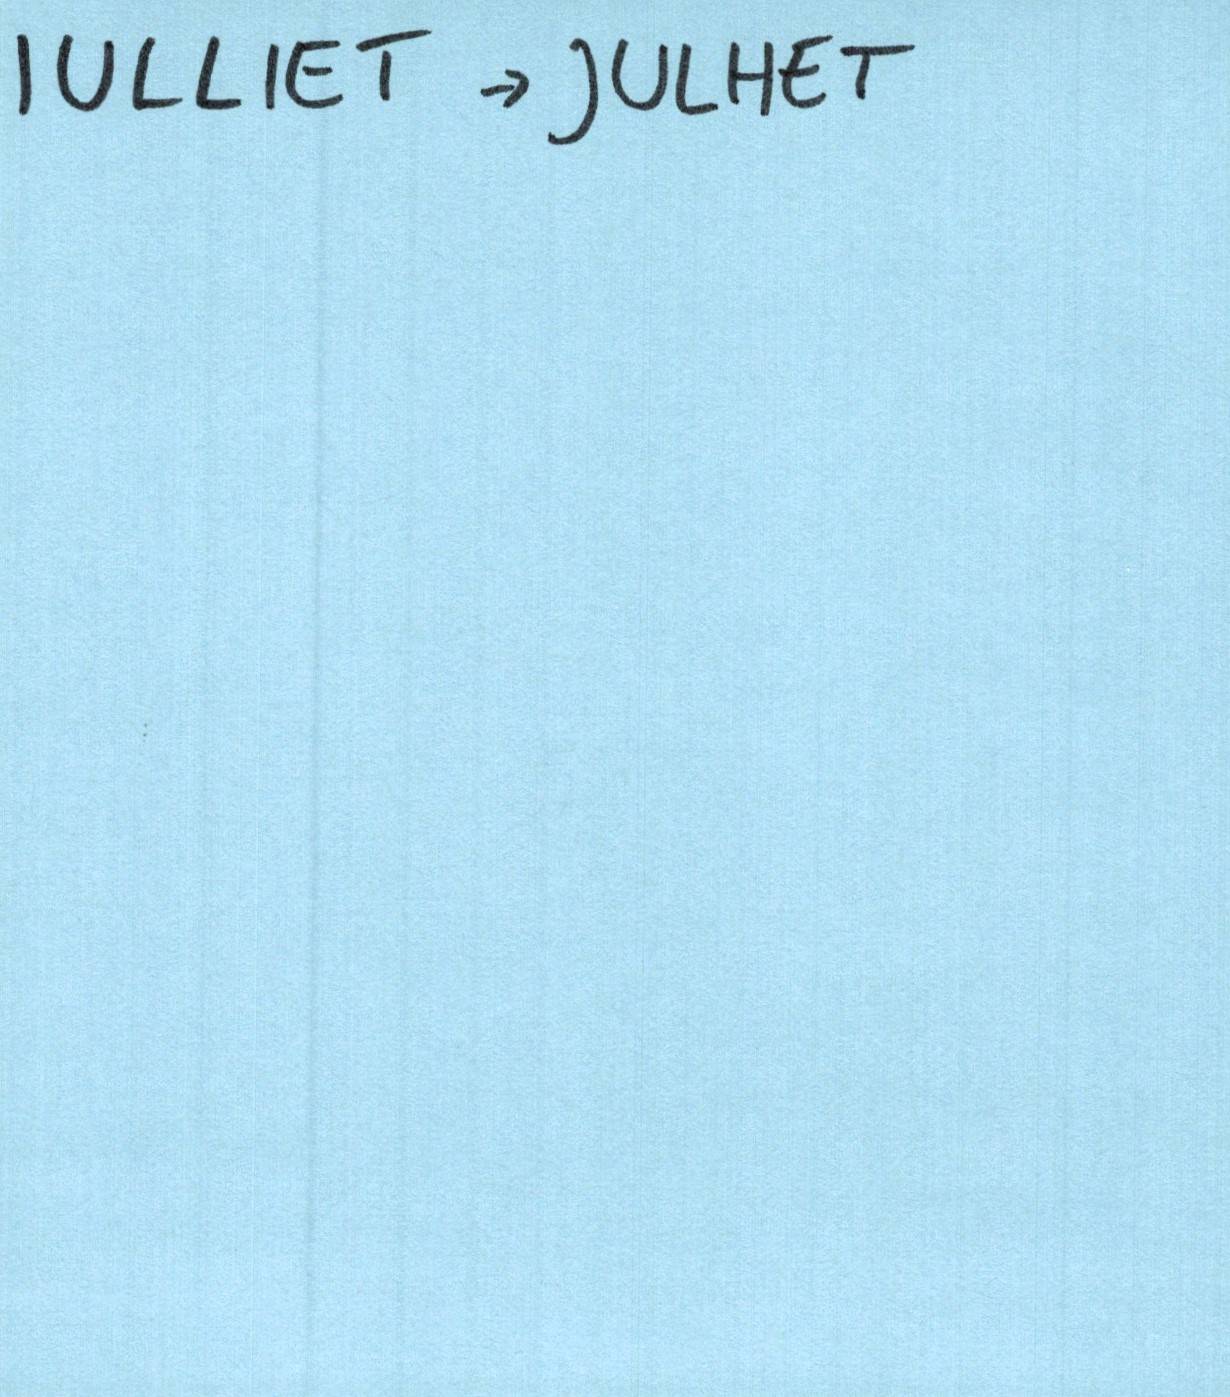 IULLIET → JULHET